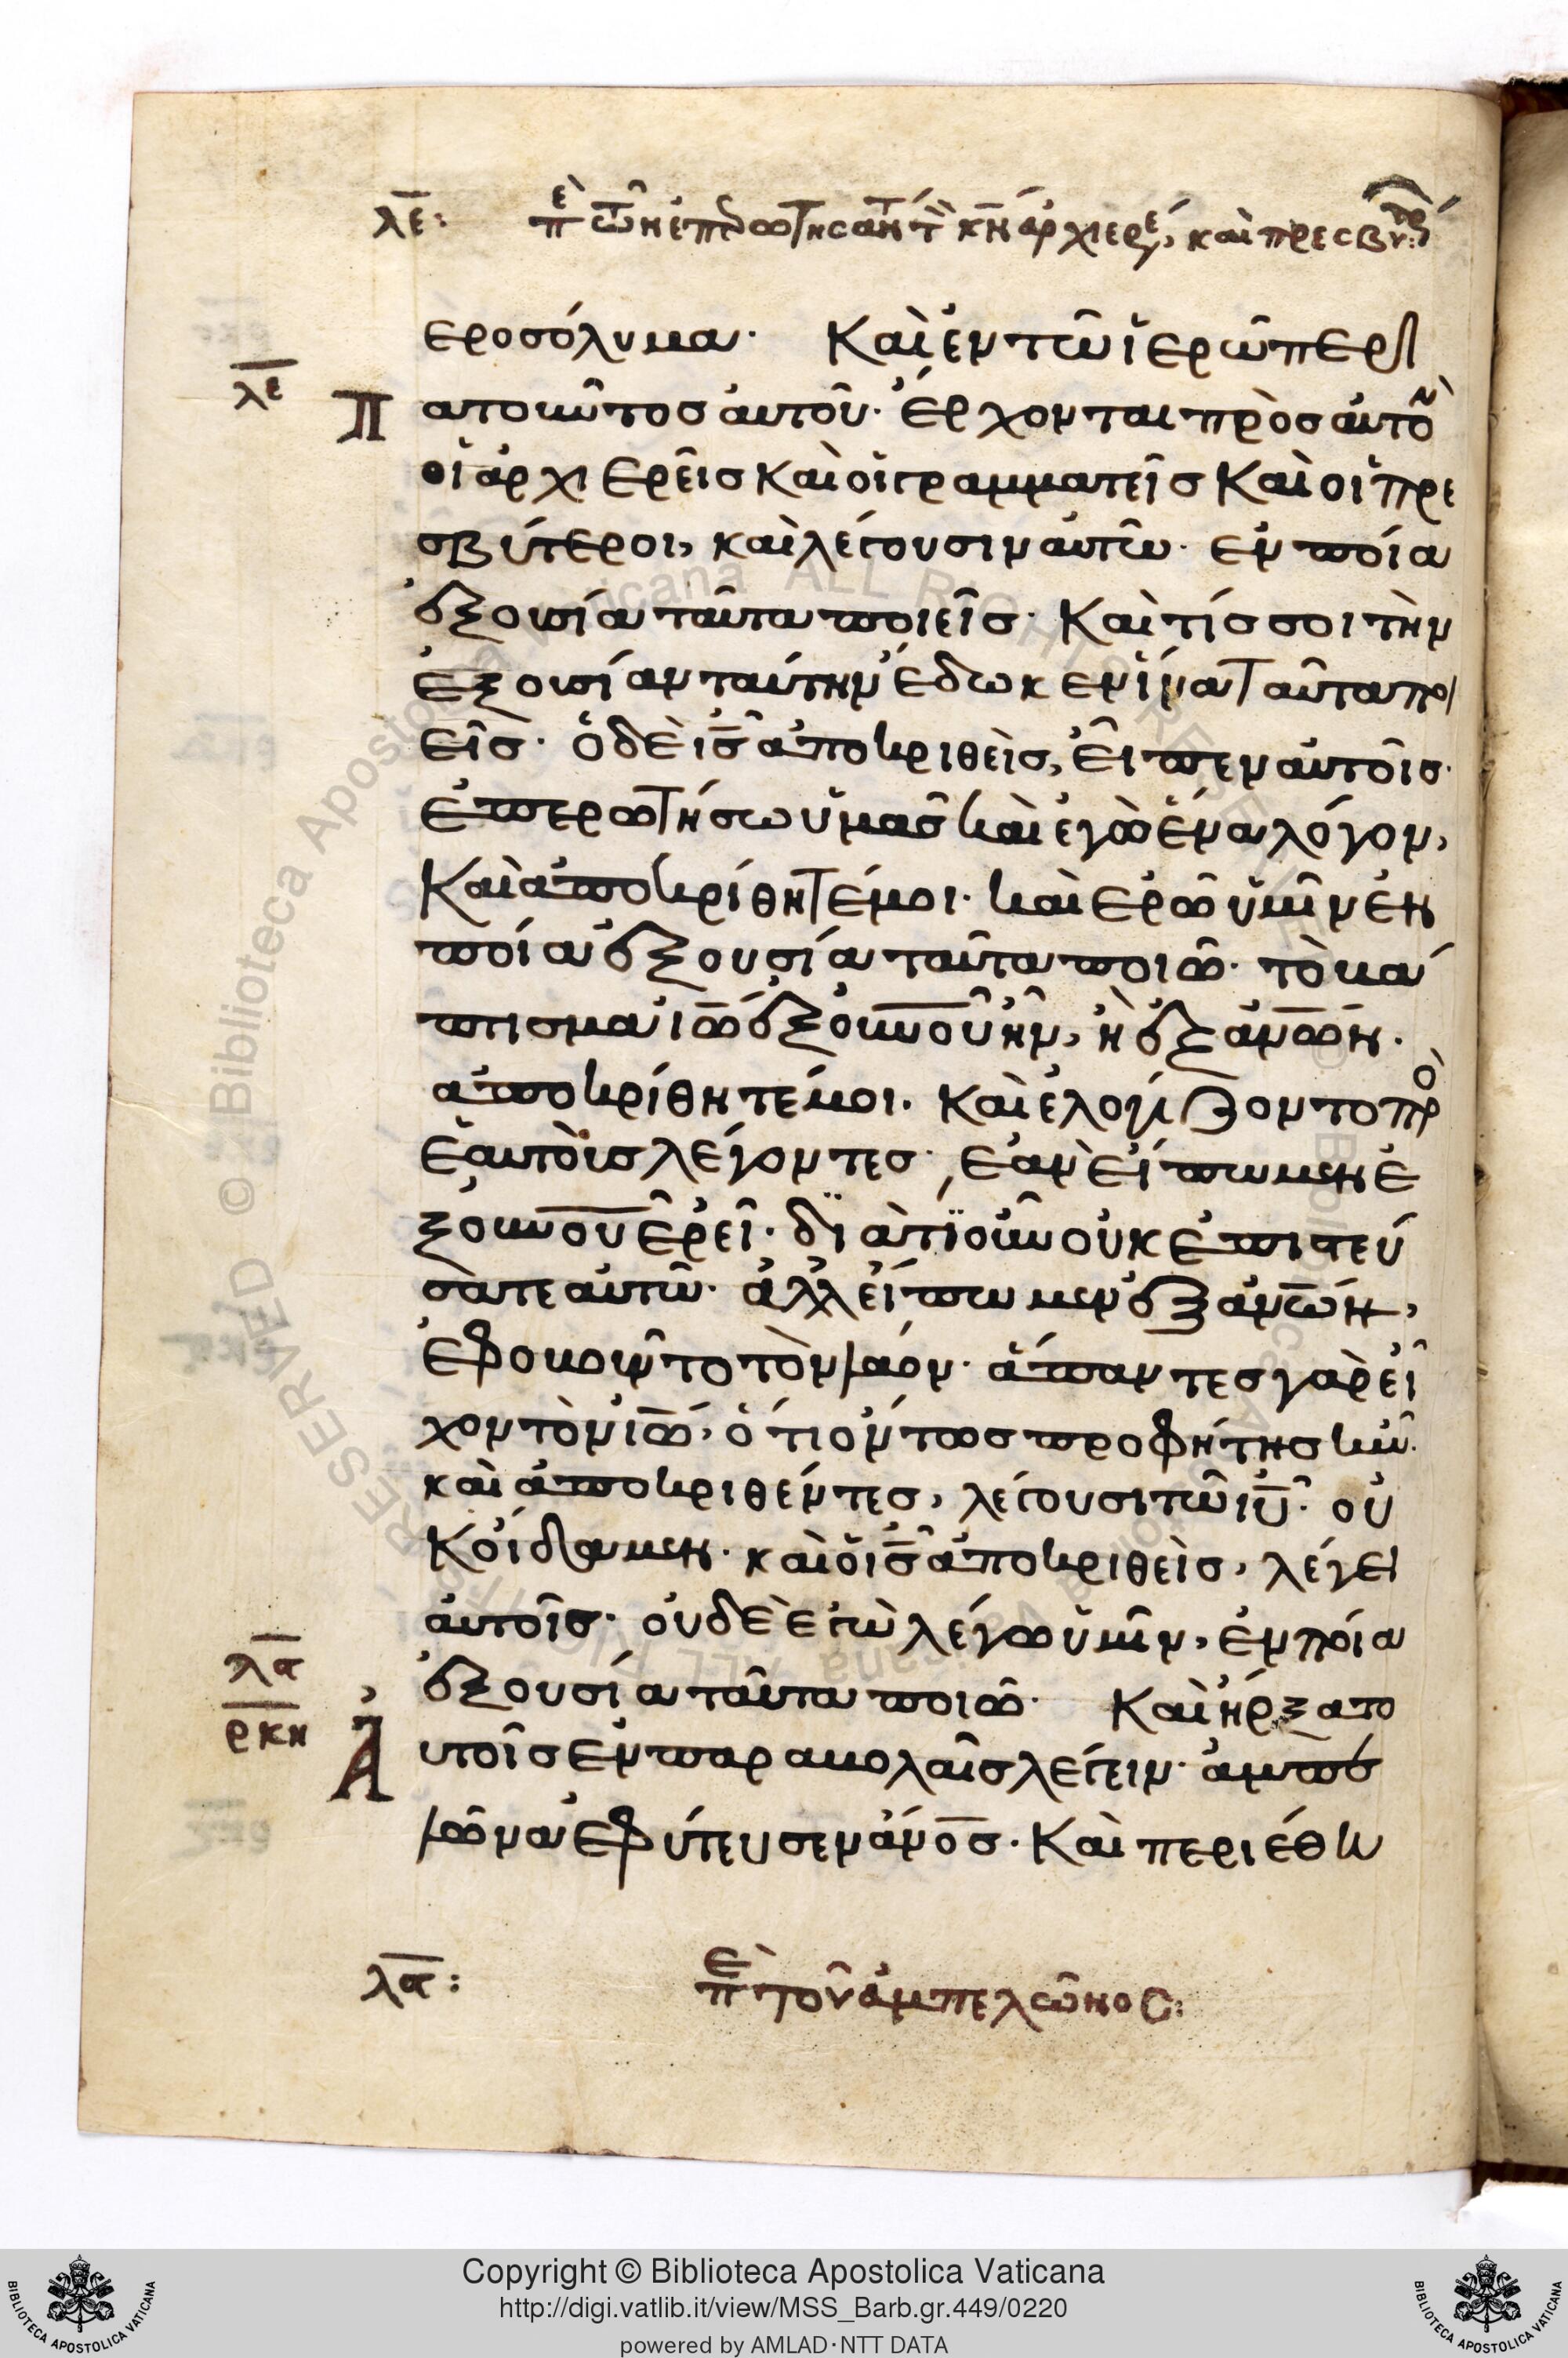 λε: πε τῶν ἐπερωτησάντ τ κν ἀρχιερε, καὶ πρεσβυτρ
εροσόλυμα· Καὶ ἐν τῶ ἱερῶ περι
λε
Πατουντοσ αυτοῦ· Ἔρχονται πρὸσ αυτὸ
οἱ ἀρχιερεῖσ καὶ οἱ γραμματεῖσ καὶ οἱ πρε
σβύτεροι, καὶ λέγουσιν αυτῶ· ἐν ποία
ἐξουσία ταῦτα ποιεῖσ· Καὶ τίσ σοι τὴν
ἐξουσίαν ταύτην ἔδωκεν ἵνα ταῦτα ποι
εῖσ· ὁ δὲ ισ ἀποκριθεὶσ, εἶπεν αυτοῖσ·
ἐπερωτήσω ὑμᾶσ καὶ ἐγὼ ἕνα λόγον,
Καὶ ἀποκρίθητέ μοι· καὶ ἐρῶ ὑμῖν ἐν
ποία ἐξουσία ταῦτα ποιῶ· τὸ βά
πτισμα ιω ἐξ ουνου ἦν, ἢ ἐξ ανων·
ἀποκρίθητέ μοι· καὶ ἐλογίζοντο πρὸ
ἑαυτοὺσ λέγοντεσ· ἐὰν εἴπωμεν ἐ
ξ ουνου ἐρεῖ· δϊατί οὖν οὐκ ἐπιστεύ
σατε αυτῶ· ἀλλ εἴπωμεν ἐξ ανων,
ἐφοβοῦντο τὸν λαόν· ἅπαντεσ γὰρ εἶ
χον τὸν ιω, ὅτι ὄντωσ προφήτησ ἦν·
καὶ ἀποκριθέντεσ, λέγουσι τῶ ιυ· οὐ
κ οἴδαμεν· καὶ ὁ ισ ἀποκριθεὶσ, λέγει
αυτοῖσ· οὐδὲ ἐγὼ λέγω ὑμῖν, ἐν ποία
λϛ
ἐξουσία ταῦτα ποιῶ· Καὶ ἤρξατο
ρκη
Ἀυτοῖσ ἐν παραβολαῖσ λέγειν· ἀμπε
λῶνα ἐφύτευσεν ανοσ· Καὶ περιέθη
λϛ: πε τοῦ ἀμπελῶνοσ:
Copyright © Biblioteca Apostolica Vaticana
http://digi.vatlib.it/view/MSS_Barb.gr.449/0220
powered by AMLAD·NTT DATA
BIBLIOTECA APOSTOLICA VATICANA
BIBLIOTECA APOSTOLICA VATICANA